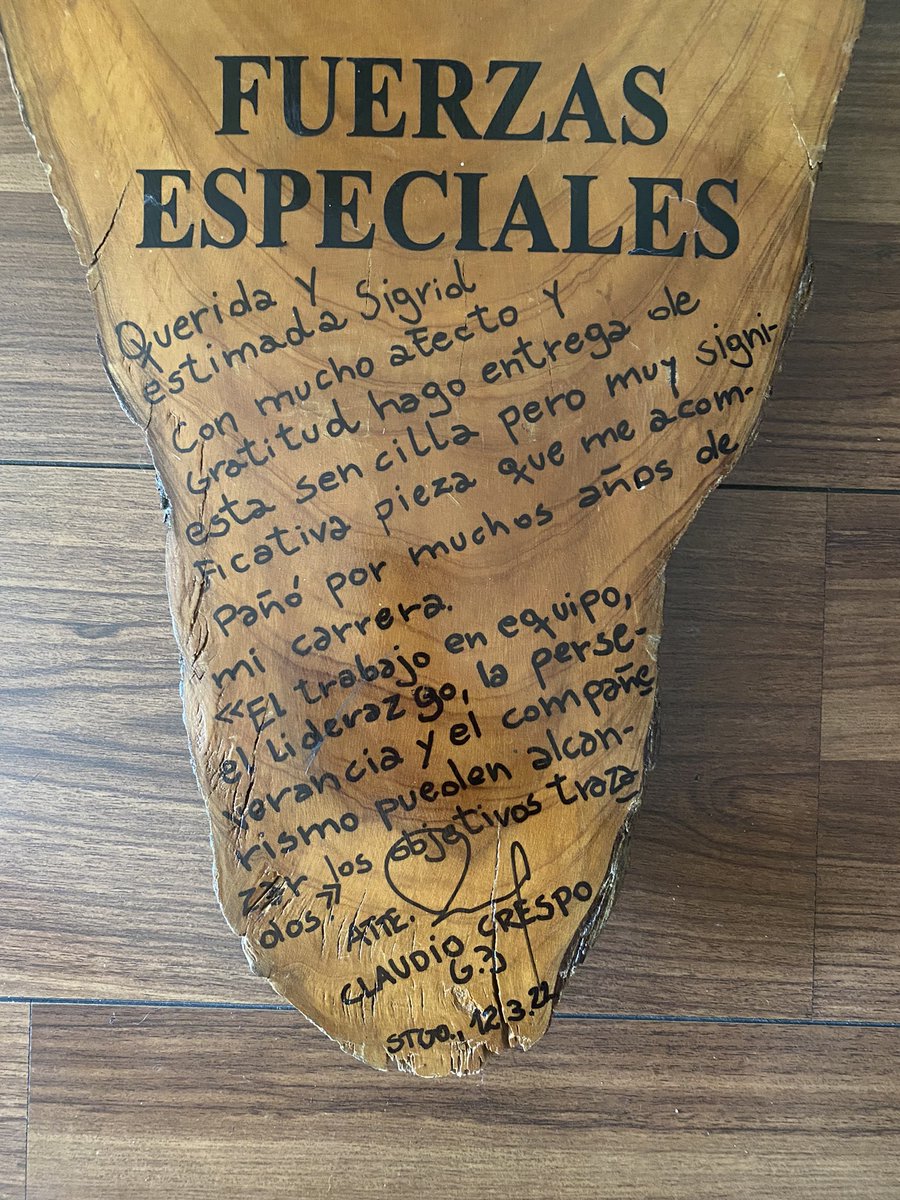 FUERZAS
ESPECIALES
Querida y
estimada Sigrid
Con mucho afecto y
gratitud hago entrega de
esta sencilla pero muy signi-
ficativa pieza que me acom-
pañó por muchos años de
mi carrera.
«El trabajo en equipo,
el liderazgo, la perse-
verancia y el compañe
rismo pueden alcan-
zar los objetivos traza
dos»
ATTE.
CLAUDIO CRESPO
G.
STGO., 12.3.22